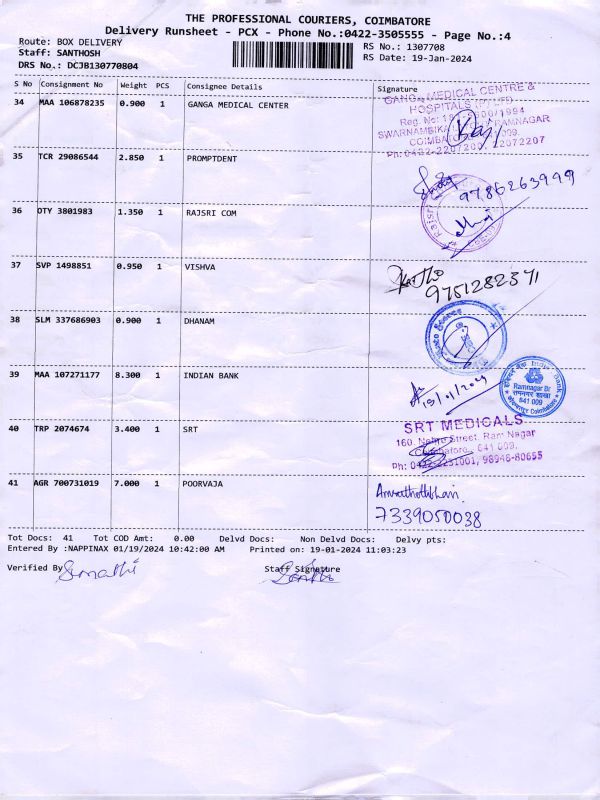 THE PROFESSIONAL COURIERS, COIMBATORE
Delivery Runsheet - PCX - Phone No.:0422-3505555 - Page No.:4
Route: BOX DELIVERY RS No.: 1307708
Staff: SANTHOSH RS Date: 19-Jan-2024
DRS No.: DCJB130770804
S No Consignment No Weight PCS Consignee Details Signature
34 MAA 106878235 0.900 1 GANGA MEDICAL CENTER
GANGA MEDICAL CENTRE &
HOSPITALS (P) LTD
SWARNAMBIKA RAMNAGAR
35 TCR 29086544 2.850 1 PROMPTDENT
9786263999
36 OTY 3801983 1.350 1 RAJSRI COM
37 SVP 1498851 0.950 1 VISHVA
9751282371
38 SLM 337686903 0.900 1 DHANAM
39 MAA 107271177 8.300 1 INDIAN BANK
Ramnagar Br
641 009
40 TRP 2074674 3.400 1 SRT
SRT MEDICALS
160, Nehru Street, Ram Nagar
Coimbatore, 641 009.
98948-80655
41 AGR 700731019 7.000 1 POORVAJA
7339050038
Tot Docs: 41 Tot COD Amt: 0.00 Delvd Docs: Non Delvd Docs: Delvy pts:
Entered By :NAPPINAX 01/19/2024 10:42:00 AM Printed on: 19-01-2024 11:03:23
Verified By Staff Signature